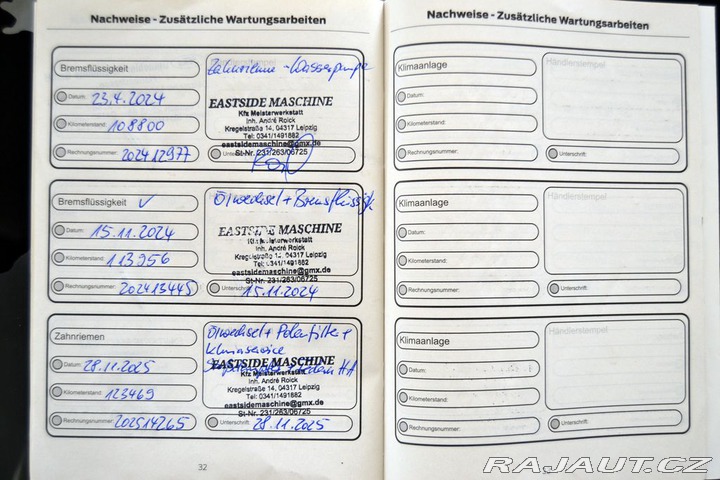 Nachweise - Zusätzliche Wartungsarbeiten
Bremsflüssigkeit
Datum: 23.4.2024
Kilometerstand: 108800
Rechnungsnummer: 202412977
Zahnriemen - Wasserpumpe
EASTSIDE MASCHINE
Kfz Meisterwerkstatt
Inh. André Roick
Kregelstraße 14, 04317 Leipzig
Tel: 0341/1491882
eastsidemaschine@gmx.de
St-Nr. 231/263/06725
Unterschrift:
Bremsflüssigkeit ✓
Datum: 15.11.2024
Kilometerstand: 113956
Rechnungsnummer: 202413445
Ölwechsel + Bremsflüssigk
EASTSIDE MASCHINE
Kfz Meisterwerkstatt
Inh. André Roick
Kregelstraße 14, 04317 Leipzig
Tel: 0341/1491882
eastsidemaschine@gmx.de
St-Nr. 231/263/06725
Unterschrift: 15.11.2024
Zahnriemen
Datum: 28.11.2025
Kilometerstand: 123469
Rechnungsnummer: 202514265
Ölwechsel + Pollenfilter +
Klimaservice
EASTSIDE MASCHINE
Kfz Meisterwerkstatt
Inh. André Roick
Kregelstraße 14, 04317 Leipzig
Tel: 0341/1491882
eastsidemaschine@gmx.de
St-Nr. 231/263/06725
Unterschrift: 28.11.2025
32
Nachweise - Zusätzliche Wartungsarbeiten
Klimaanlage
Datum:
Kilometerstand:
Rechnungsnummer:
Händlerstempel
Unterschrift:
Klimaanlage
Datum:
Kilometerstand:
Rechnungsnummer:
Händlerstempel
Unterschrift:
Klimaanlage
Datum:
Kilometerstand:
Rechnungsnummer:
Händlerstempel
Unterschrift:
RAJAUT.CZ